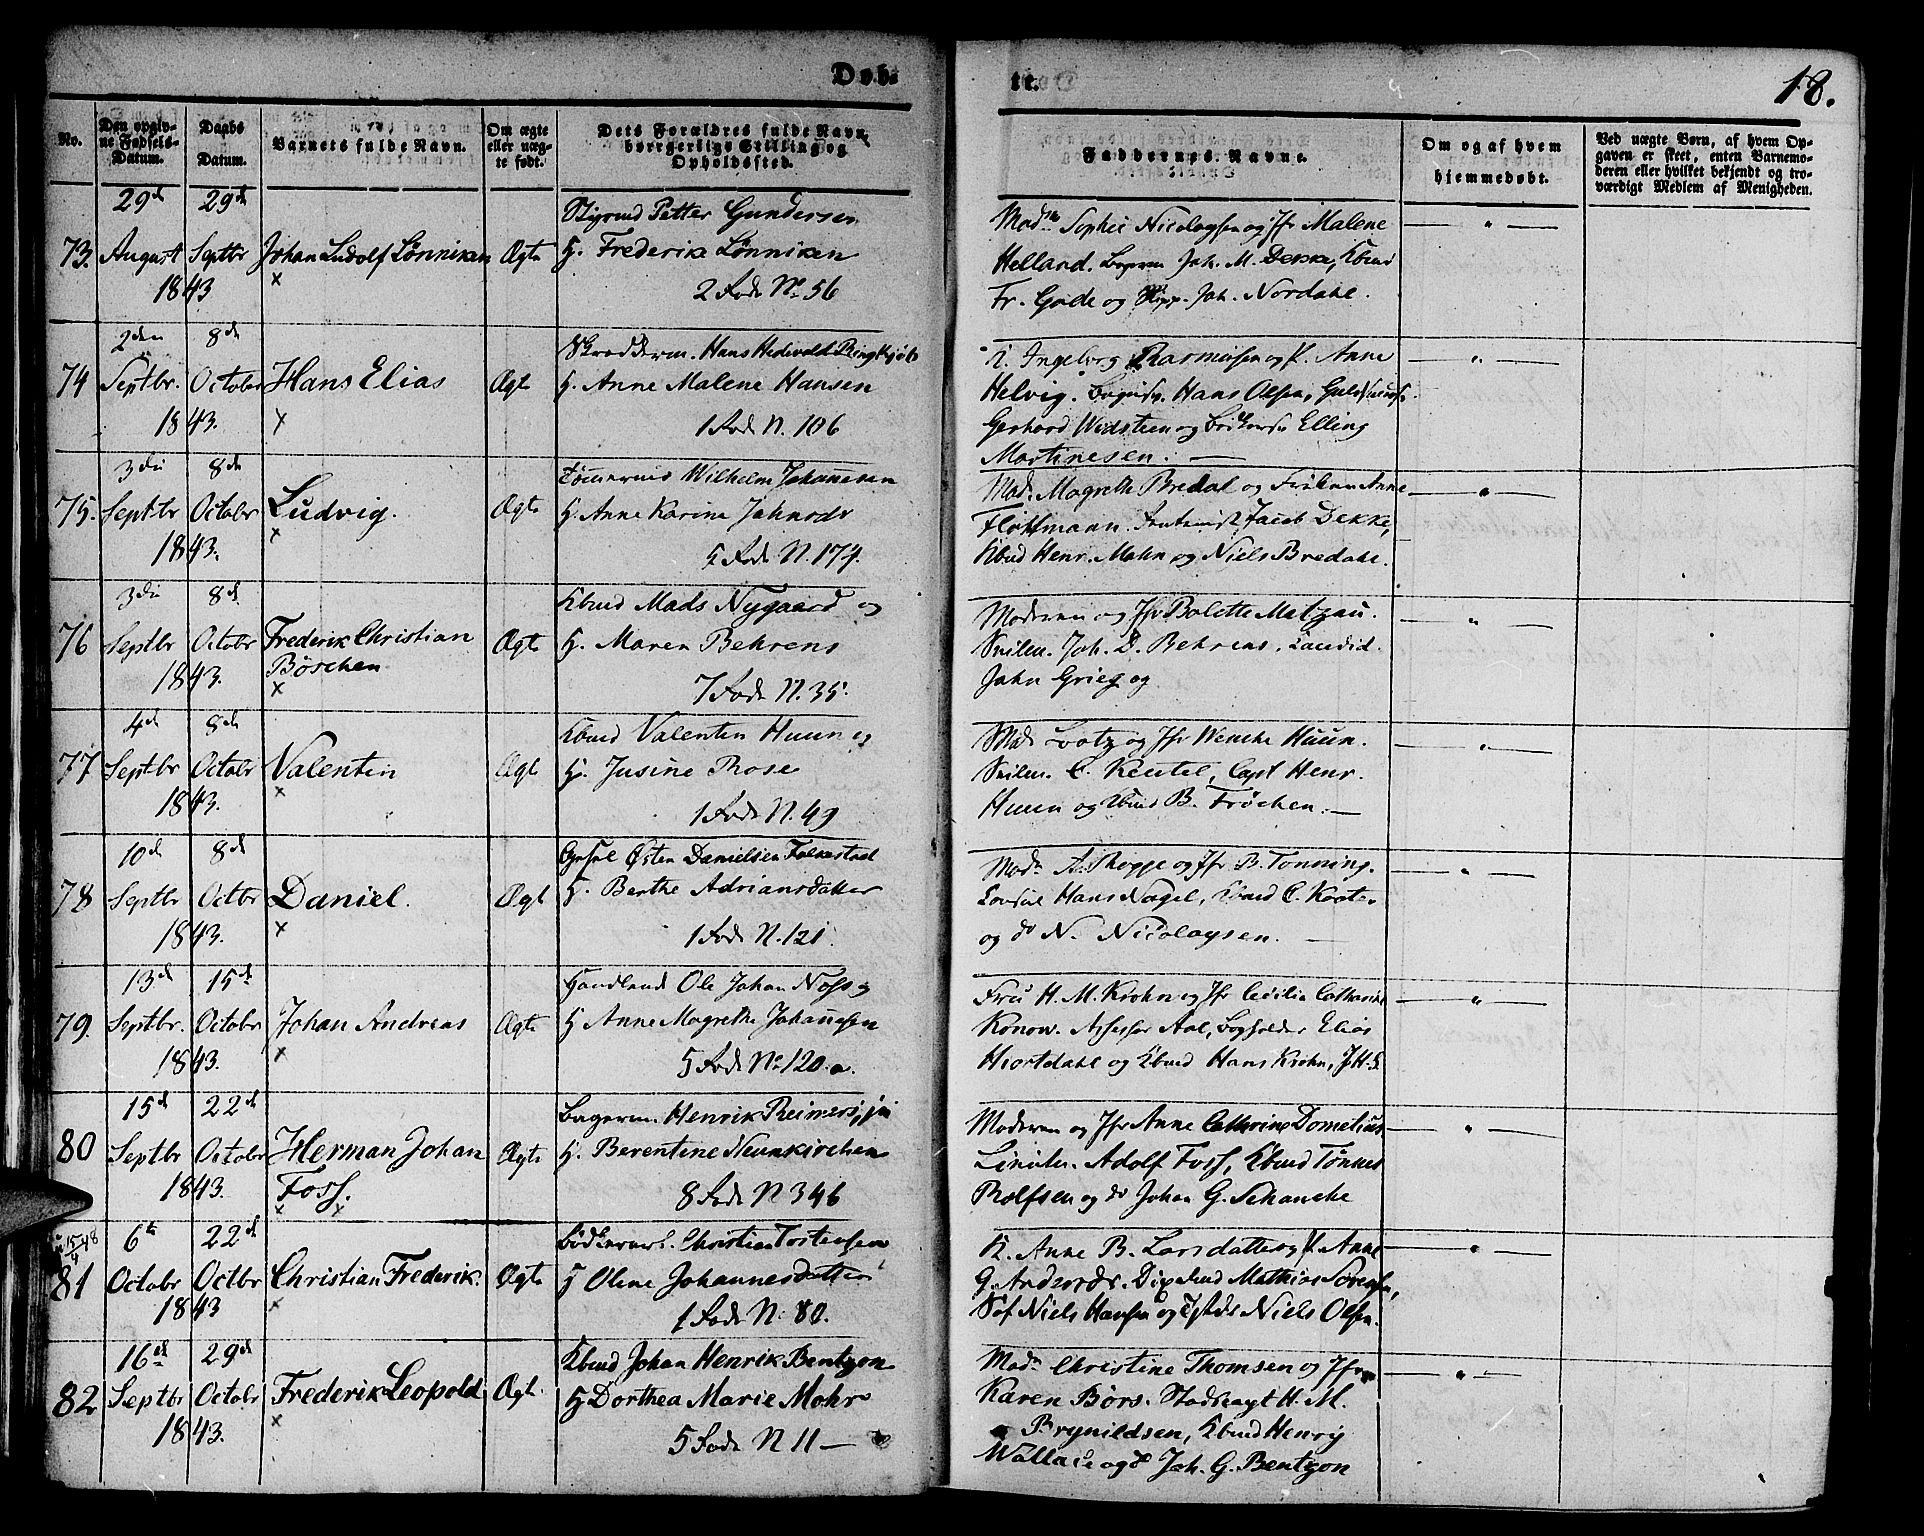 Døb-
te.
18.
No.
Den opgiv-
ne Fødsels-
Datum.
Daabs
Datum.
Barnets fulde Navn.
Om ægte
eller uæg-
te født.
Dets Forældres fulde Navn,
borgerlige Stilling og
Opholdssted.
Faddernes Navne.
Om og af hvem
hjemmedøbt.
Ved uægte Børn, af hvem Op-
gaven er skeet, enten Barnemo-
deren eller hvilket bekjendt og tro-
værdigt Medlem af Menigheden.
73.
29d August 1843
29d Septbr
Johan Ludolf Lønniken
Ægte
Petter Gundersen
H. Frederik Lønniken
2 Rode No. 56
Madm Sophie Nicolaysen og Jfr Malene
Helland. Joh. M. Dekke, Kbmd
Fr. Gade og Skipp. Joh. Nordahl.
74
2den Septbr. 1843.
8de October
Hans Elias
Ægte
Skrædderm. Hans Hedevold Ringkjøb
H. Anne Malene Hansen
1 Rode N. 106
K. Ingeborg Rasmusen og P. Anne
Helvig. Hans Olsen,
Gerhard Widsteen og Elling
Martinesen. —
75.
3die Septbr 1843.
8de Octobr
Ludvig.
Ægte
Tømmermd Wilhelm Johannesen
H. Anne Karine Jahnsdr
5 Rode N. 174.
Mad. Magrethe Bredal og Frøken Anne
Flottmann. Jacob Dekke,
Kbmd Henr. Mohn og Niels Bredahl.
76
3die Septbr 1843.
8de Octobr
Frederik Christian
Bøschen
Ægte
Kbmd Mads Nygaard og
H. Maren Behrens
7 Rode N. 35.
Moderen og Jfr Bolette Matzau.
Joh. D. Behrens, Candid.
Jahn Grieg og
77
4de Septbr 1843.
8de Octobr
Valentin
Ægt
Kbmd Valentin Huun og
H. Jusine Rose
1 Rode N. 49
Mad. Lootz og Jfr Wenche Huun.
C. Keutel, Capt Henr.
Huun og Kbmd B. Frøchen. —
78
10de Septbr 1843.
8de Octbr
Daniel.
Ægt
Østen Danielsen Folkestad
H. Berthe Adriansdatter
1 Rode N. 121.
Madm A. Rogge og Jfr B. Tonning.
Consul Hans Nagel, Kbmd C. Konte-
og do N. Nicolaysen. —
79.
13de Septbr. 1843.
15de Octobr
Johan Andreas
Ægte
Handlende Ole Johan Næss og
H Anne Magrethe Johannesen
5 Rode No. 120.a.
Fru H. M. Krohn og Jfr Cecilia Catharine
Konow. Assessor Aal, Bogholder Elias
Hiortdahl og Kbmd Hans Krohn,
80
15de Septbr 1843.
22de Octobr
Herman Johan
Foss.
Ægte
Bagerm. Henrik Reimers, jun
H. Berentine Neunkirchen
8 Rode N 346
Moderen og Jfr Anne Cathrine Dometius
Adolf Foss, Kbmd Tønnes
Rolfsen og do Johan G. Schancke
15/4 48
81
6te Octobr 1843
22de Octbr
Christian Frederik.
Ægte
Christian Torstensen
H Oline Johannesdatter
1 Rode N. 80.
K. Anne B. Larsdatter og P. Anne
G. Andersdr. Mathias Sørensen,
Niels Hansen og Niels Olsen.
82
16de Septbr 1843.
29de Octobr
Frederik Leopold
Ægt.
Kbmd Johan Henrik Bentzon
H Dorthea Marie Mohr
5 Rode N 11 —
Madm Christine Thomsen og Jfr
Karen Börs. H. M.
Brynildsen, Kbmd Henry
Wallace og do Joh. G. Bentzon